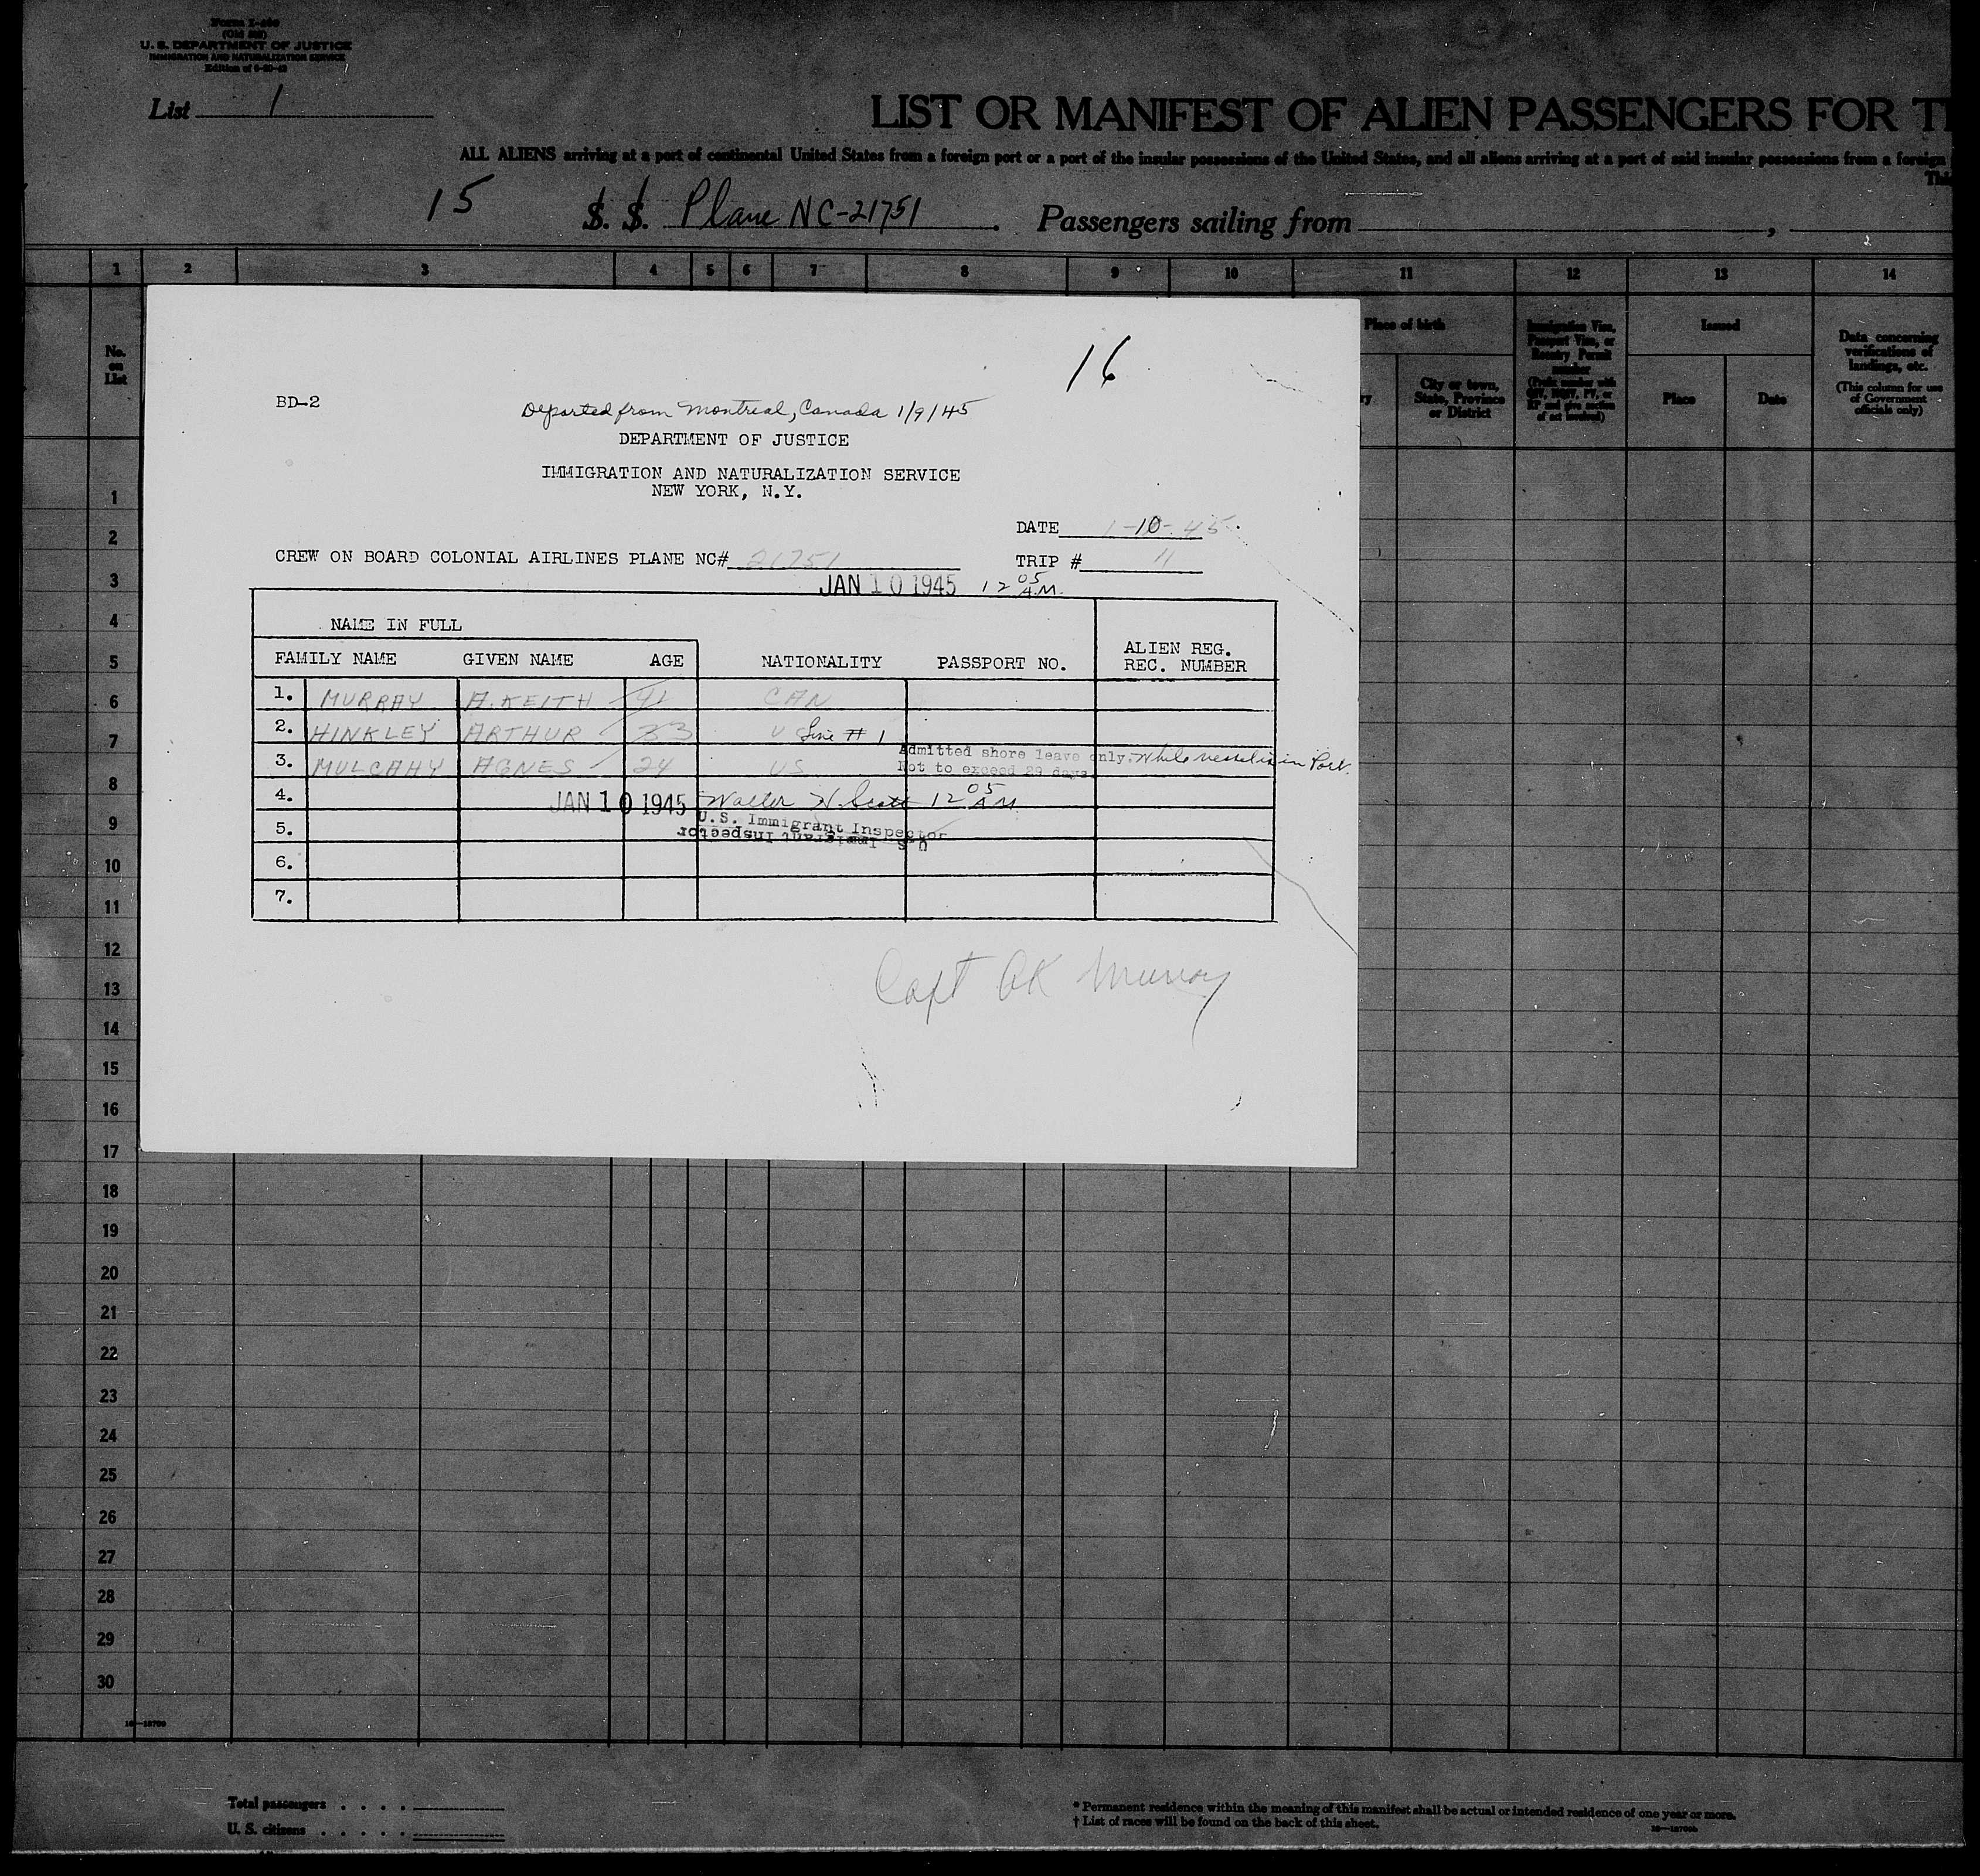 (Old 500)
U. S. DEPARTMENT OF JUSTICE
IMMIGRATION AND NATURALIZATION SERVICE
List 1
LIST OR MANIFEST OF ALIEN PASSENGERS FOR T
ALL ALIENS arriving at a port of continental United States from a foreign port or a port of the insular possessions of the United States, and all aliens arriving at a port of said insular possessions from a foreign
15 S. S. Plane NC-21751. Passengers sailing from ,
1 2 3 4 5 6 7 8 9 10 11 12 13 14
No. on List
Place of birth
City or town, State, Province or District
Issued
Place Date
Data concerning verifications of landings, etc.
(This column for use of Government officials only)
16
BD-2
Departed from Montreal, Canada 1/9/45
DEPARTMENT OF JUSTICE
IMMIGRATION AND NATURALIZATION SERVICE
NEW YORK, N.Y.
DATE 1-10-45
CREW ON BOARD COLONIAL AIRLINES PLANE NC# 21751 TRIP # 11
JAN 10 1945 12 05 A.M.
NAME IN FULL
FAMILY NAME GIVEN NAME AGE NATIONALITY PASSPORT NO. ALIEN REG. REC. NUMBER
1. MURRAY A. KEITH 41 CAN
2. HINKLEY ARTHUR 33 U Line # 1
3. MULCAHY AGNES 24 US Admitted shore leave only. While vessel is in Port.
Not to exceed 29 days
4. JAN 10 1945 Walter N. Scott 12 05 AM
5. U.S. Immigrant Inspector
U.S. Immigrant Inspector
6.
7.
Capt AK Murray
1
2
3
4
5
6
7
8
9
10
11
12
13
14
15
16
17
18
19
20
21
22
23
24
25
26
27
28
29
30
Total passengers . . . .
U. S. citizens . . . . .
* Permanent residence within the meaning of this manifest shall be actual or intended residence of one year or more.
† List of races will be found on the back of this sheet.